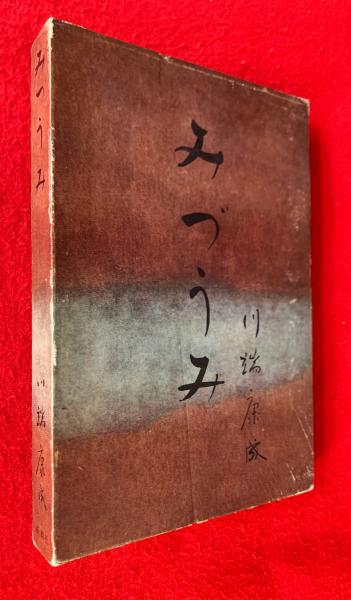 みづうみ
川端康成
みづうみ
川端康成